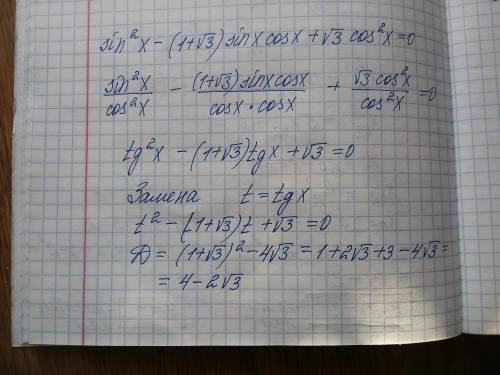 sin²x - (1+√3) sinx cosx + √3 cos²x = 0
sin²x/cos²x - (1+√3) sinx cosx/cosx · cosx + √3 cos²x/cos²x = 0
tg²x - (1+√3) tgx + √3 = 0
Замена t = tgx
t² - (1+√3) t + √3 = 0
Д = (1+√3)² - 4√3 = 1 + 2√3 + 3 - 4√3 =
= 4 - 2√3